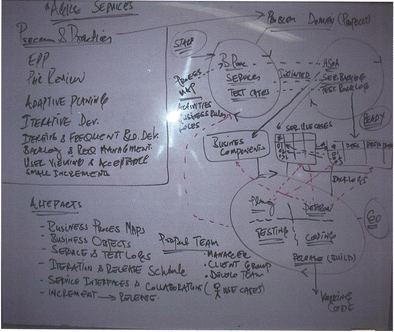 AGILE SERVICES
& Practices
EPP
Review
ADAPTIVE PLANNING
ITERATIVE DEV.
& FREQUENT BLD. DEV.
BACKLOG & REQ MANAGMENT.
USER VIEWING & ACCEPTABLE
SMALL INCREMENTS
ARTEFACTS
- BUSINESS PROCESS MAPS
- BUSINESS OBJECTS
- SERVICE & TEST LOGS
- ITERATION & RELEASE SCHEDULE
- SERVICE INTERFACES & COLLABORATION (USE CASES)
- INCREMENT → RELEASE.
PROBLEM DOMAIN (PROJECT)
START
PROCESS
MAP
ACTIVITIES
BUSINESS RULES
ROLES
SERVICES
TEST CASES
TEST BACKLOG
READY
BUSINESS
COMPONENTS
6 SER. USE CASES
DESIGN
TESTING
CODING
RELEASE (BUILD)
GO
PROJECT TEAM
- MANAGER
- CLIENT GROUP
- DEVELO TEAM
WORKING
CODE